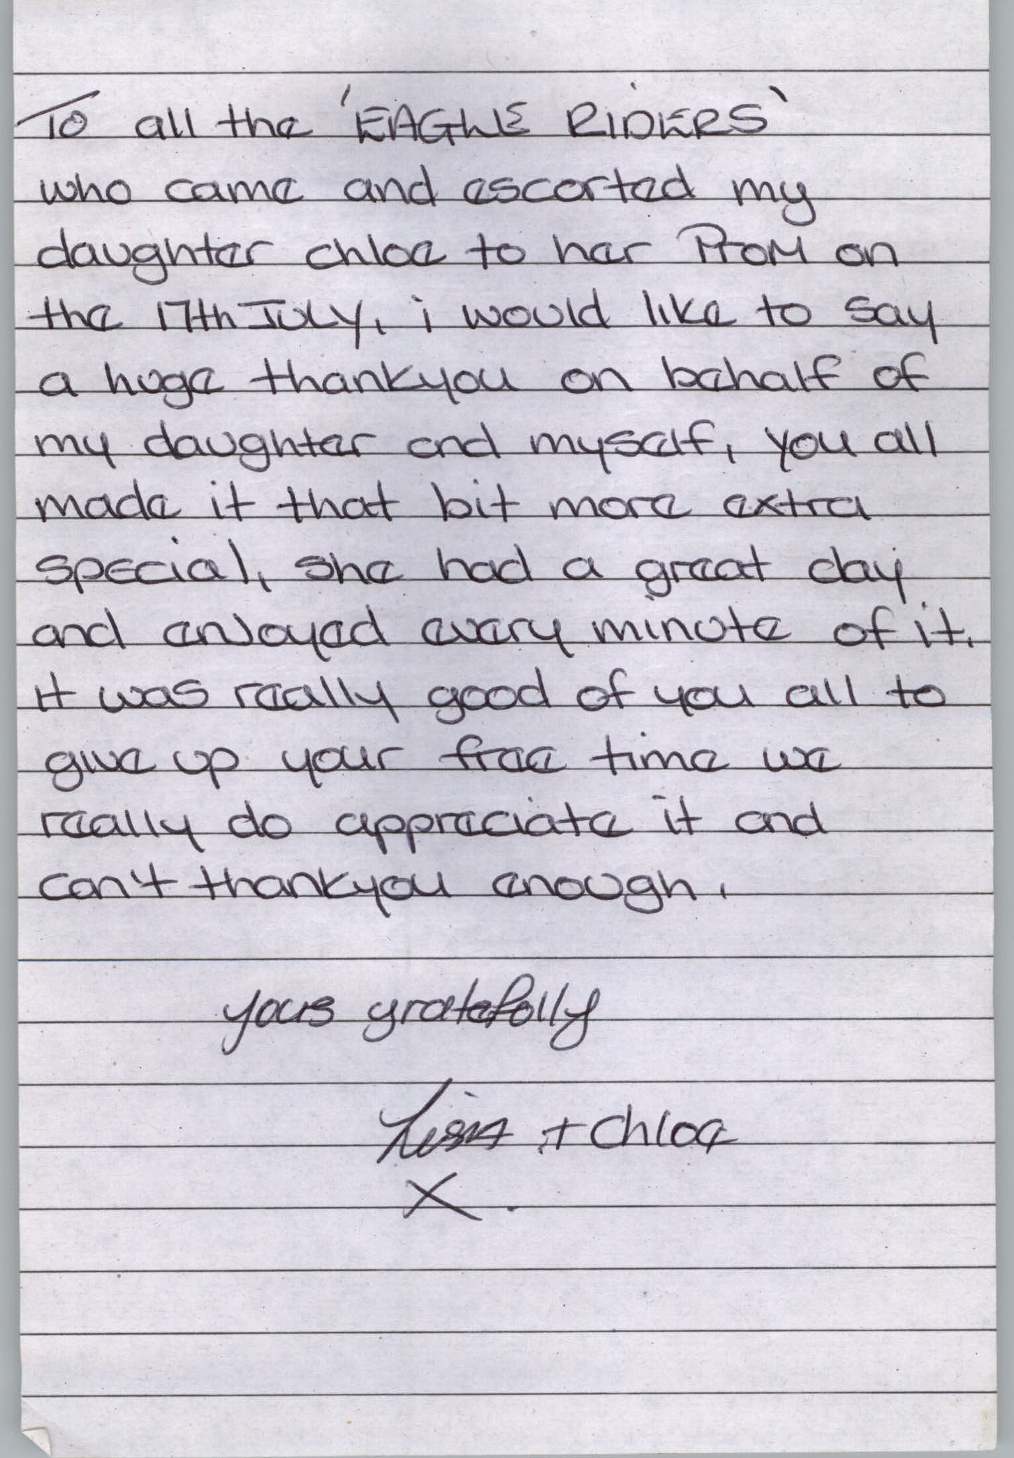 To all the 'EAGLE RIDERS'
who came and escorted my
daughter chloe to her ProM on
the 17th JULY, i would like to say
a huge thankyou on behalf of
my daughter and myself, you all
made it that bit more extra
special, she had a great day
and enJoyed every minute of it.
it was really good of you all to
give up your free time we
really do appreciate it and
can't thankyou enough,
yours gratefully
Lisa + Chloe
X.